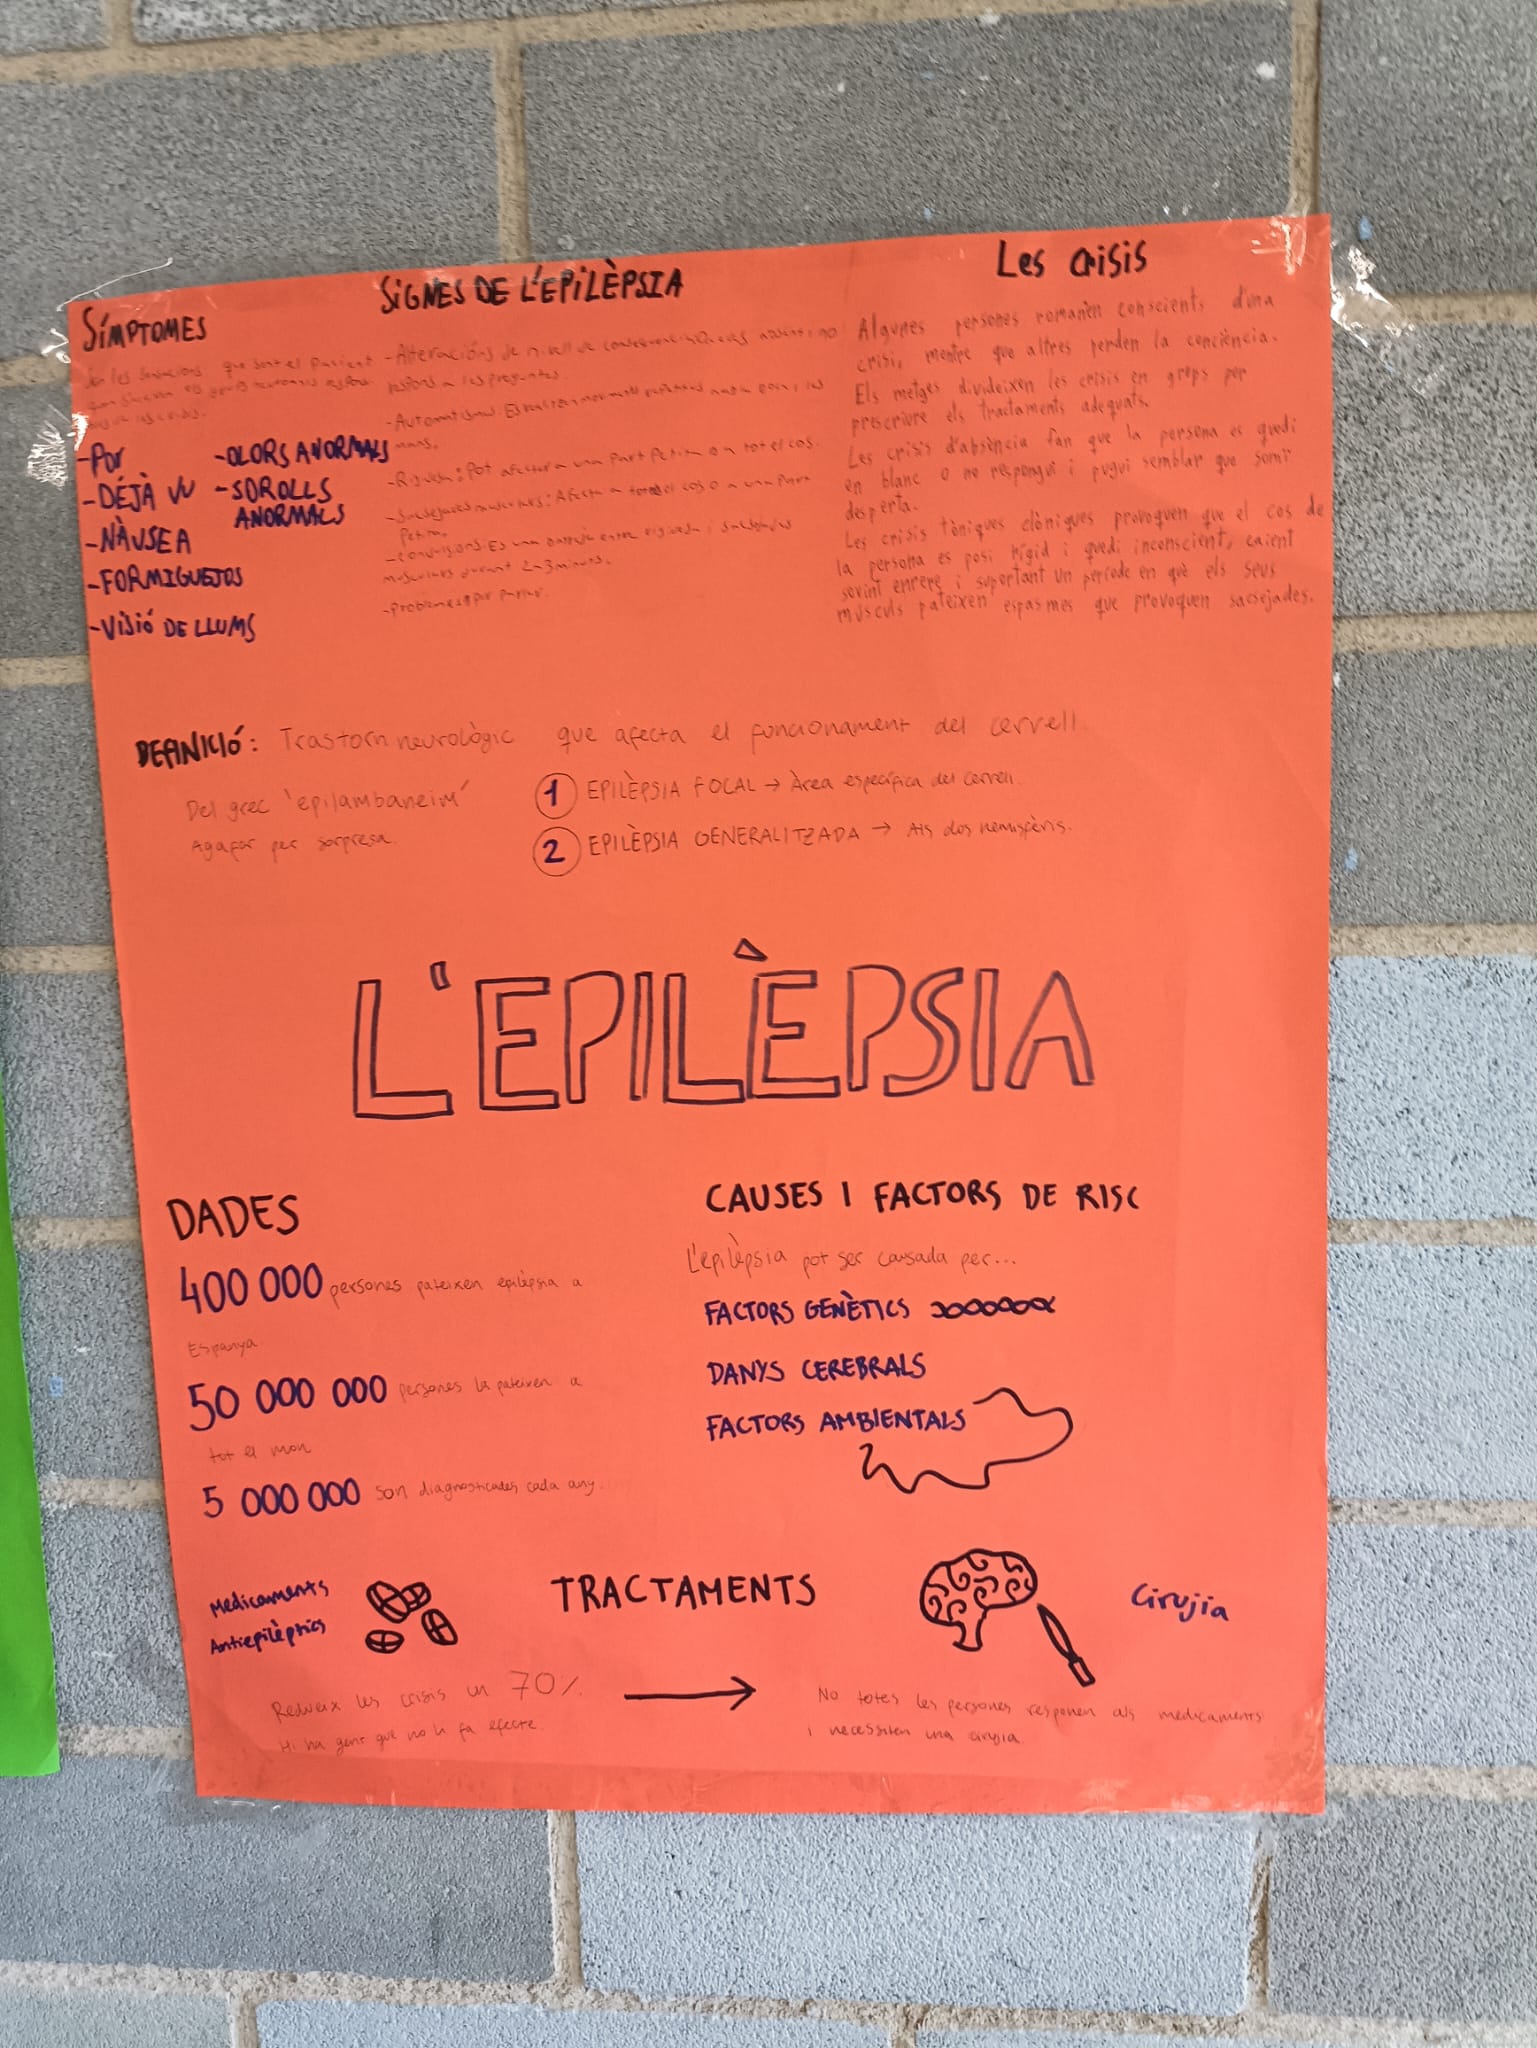 SÍMPTOMES
que sent el pacient
-POR
-DÉJÀ VU
-NÀUSEA
-FORMIGUEJOS
-VISIÓ DE LLUMS
-OLORS ANORMALS
-SOROLLS
ANORMALS
SIGNES DE L'EPILÈPSIA
-Alteracións de nivell de
respons a les preguntes.
-Automatismes: Es realitzen moviments
mans.
Pot afectar a una part petita o a tot el cos.
-Sacsejades musculars: Afecta a tot el cos o a una part
petita.
-Convulsions: Es una barreja entre rigidesa i sacsejades
musculars durant 2a3 minuts.
-Problemes per parlar.
Les crisis
Algunes persones romanen conscients d'una
crisi, mentre que altres perden la conciència.
Els metges divideixen les crisis en grups per
prescriure els tractaments adequats.
Les crisis d'absència fan que la persona es quedi
en blanc o no respongui i pugui semblar que somi
desperta.
Les crisis tòniques clòniques provoquen que el cos de
la persona es posi rígid i quedi inconscient, caient
sovint enrere i suportant un període en què els seus
músculs pateixen espasmes que provoquen sacsejades.
DEFINICIÓ: Trastorn neurològic que afecta el funcionament del cervell.
Del grec 'epilambaneim'
Agafar per sorpresa.
1 EPILÈPSIA FOCAL → Àrea específica del cervell.
2 EPILÈPSIA GENERALITZADA → Als dos hemisferis.
L'EPILÈPSIA
DADES
400 000 persones pateixen epilèpsia a
Espanya
50 000 000 persones la pateixen a
tot el mon
5 000 000 són diagnosticades cada any.
CAUSES I FACTORS DE RISC
L'epilèpsia pot ser causada per...
FACTORS GENÈTICS
DANYS CEREBRALS
FACTORS AMBIENTALS
TRACTAMENTS
Medicaments
Antiepilèptics
Redueix les crisis un 70%.
Hi ha gent que no li fa efecte.
Cirujia
No totes les persones responen als medicaments
i necessiten una cirujia